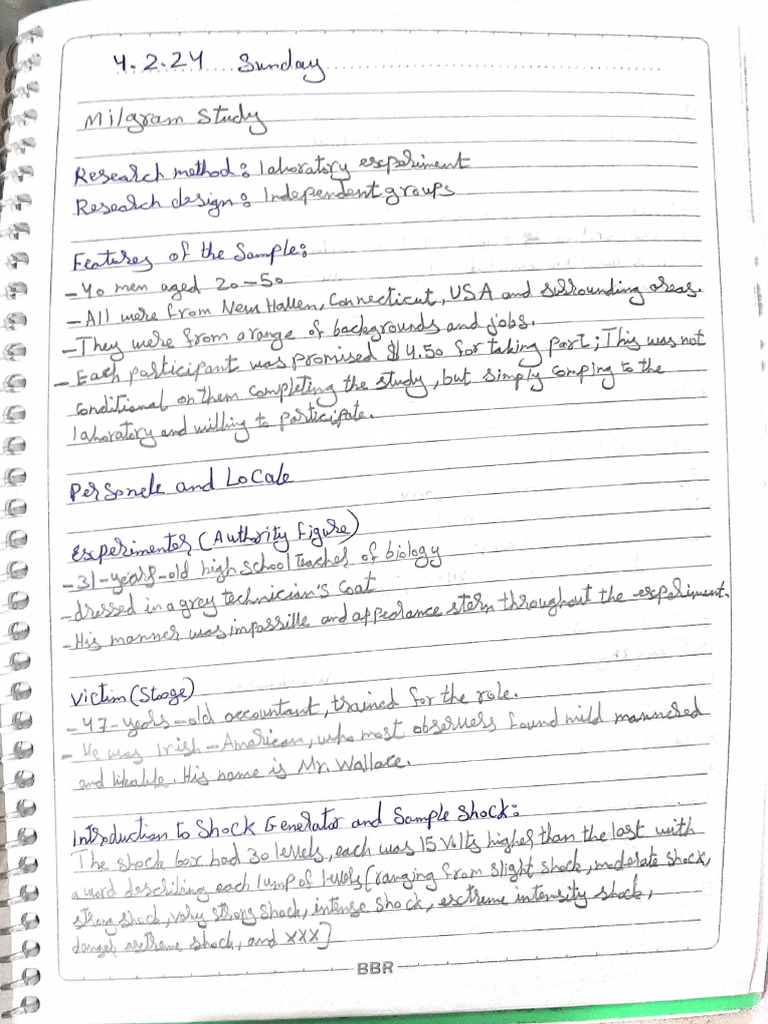 4.2.24 Sunday
Milgram Study
Research method: laboratory experiment
Research design: Independent groups
Features of the Sample:
- 40 men aged 20-50
- All were from New Haven, Connecticut, USA and surrounding areas.
- They were from a range of backgrounds and jobs.
- Each participant was promised $4.50 for taking part; This was not
conditional on them completing the study, but simply comping to the
laboratory and willing to participate.
Personele and Locale
Experimenter (Authority figure)
- 31-years-old high school teacher of biology
- dressed in a grey technician's coat
- His manner was impassille and appearance stern throughout the experiment.
Victim (Stooge)
- 47-years-old accountant, trained for the role.
- He was Irish-American, who most observers found mild mannered
and likable. His name is Mr. Wallace.
Introduction to Shock Generator and Sample Shock:
The shock box had 30 levels, each was 15 Volts higher than the last with
a word describing each lump of levels (ranging from slight shock, moderate shock,
strong shock, very strong shock, intense shock, extreme intensity shock,
danger extreme shock, and XXX]
BBR